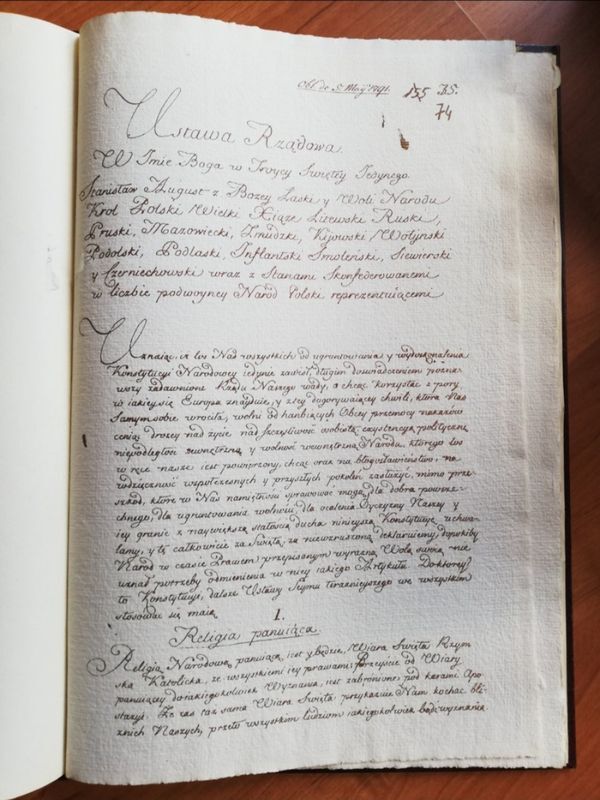 Obl. de 5. Maÿ 1791. 155 JS.
74
Ustawa Rządowa.
W Imie Boga w Troycy Świętey Jedynego.
Stanisław August z Bożey Łaski y Woli Narodu
Krol Polski, Wielki Xiąże Litewski, Ruski,
Pruski, Mazowiecki, Zmudzki, Kijowski, Wołyński
Podolski, Podlaski, Inflantski, Smoleński, Siewierski
y Czerniechowski wraz z Stanami Skonfederowanemi
w liczbie podwoyney Naród Polski reprezentuiącemi
Uznaiąc, iż los Nas wszystkich od ugruntowania y wydoskonalenia
Konstytucyi Narodowey iedynie zawisł, długim doświadczeniem pozna-
wszy zadawnione Rządu Naszego wady, a chcąc korzystać z pory
w iakiey się Europa znayduie, y z tey dogorywaiącey chwili, która Nas
Samym sobie wróciła, wolni od hańbiących Obcey przemocy nakazów
ceniąc drożey nad życie, nad szczęśliwość osobistą, exystencyą polityczną
niepodległość zewnętrzną y wolność wewnętrzną Narodu, którego los
w ręce nasze iest powierzony, chcąc oraz na błogosławieństwo, na
wdzięczność współczesnych y przyszłych pokoleń zasłużyć, mimo prze-
szkód, które w Nas namiętności sprawować mogą, dla dobra powsze-
chnego, dla ugruntowania wolności, dla ocalenia Oyczyzny Naszey y
iey granic z naywiększą stałością ducha ninieyszą Konstytucyę uchwa-
lamy, y tę całkowicie za Świętą, za niewzruszoną deklaruiemy, dopókiby
Naród w czasie Prawem przepisanym wyraźną Wolą swoią nie
uznał potrzeby odmienienia w niey iakiego Artykułu. Do którey
to Konstytucyi, dalsze Ustawy Seymu teraznieyszego we wszystkim
stosować się maią.
1.
Religia panuiąca.
Religią Narodową panuiącą iest y będzie, Wiara Święta Rzym-
ska Katolicka, ze wszystkiemi iey prawami; Przeyście od Wiary
panuiącey do iakiegokolwiek Wyznania, iest zabronione pod karami Apo-
stazyi. Że zas taż sama Wiara Święta przykazuie Nam kochać bli-
znich Naszych, przeto wszystkim ludziom iakiegokolwiek bądź wyznania